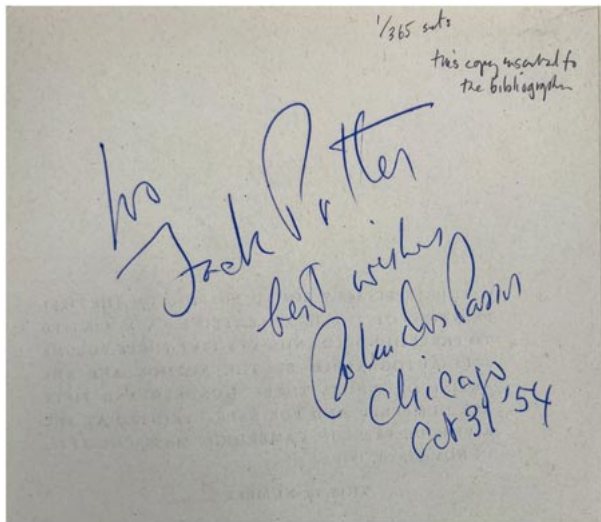 1/365 sets
this copy inscribed to
the bibliographer
to
Jack Potter
best wishes
John Dos Passos
Chicago
Oct 31 '54